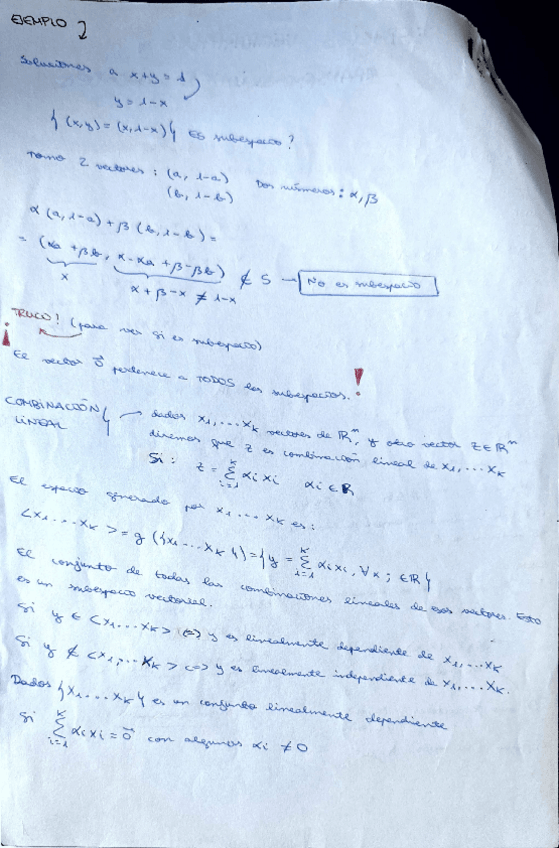 EJEMPLO
Soluciones a x+y=1
y=1-x
{(x,y)=(x,1-x)} es subespacio?
Tomo 2 vectores: (a, 1-a) Dos números: α,β
(b, 1-b)
α(a,1-a)+β(b,1-b)=
=(αa+βb, α-αa+β-βb) ∉ S → No es subespacio
x α+β-x ≠ 1-x
¡TRUCO! (para ver si es subespacio)
El vector 0⃗ pertenece a TODOS los subespacios!
COMBINACIÓN LINEAL } → dados x₁,...xₖ vectores de ℝⁿ, y otro vector z∈ℝⁿ
diremos que z es combinación lineal de x₁,...xₖ
Si: z=∑ᵢ₌₁ᵏ αᵢxᵢ αᵢ∈ℝ
El espacio generado por x₁...xₖ es:
<x₁...xₖ>=g({x₁...xₖ})={y=∑ᵢ₌₁ᵏ αᵢxᵢ, ∀αᵢ∈ℝ}
El conjunto de todas las combinaciones lineales de esos vectores. Esto
es un subespacio vectorial.
Si y∈<x₁...xₖ> <=> y es linealmente dependiente de x₁,...xₖ
Si y∉<x₁,...xₖ> <=> y es linealmente independiente de x₁,...xₖ.
Dados {x₁...xₖ} es un conjunto linealmente dependiente
Si ∑ᵢ₌₁ᵏ αᵢxᵢ=0⃗ con algunos αᵢ≠0